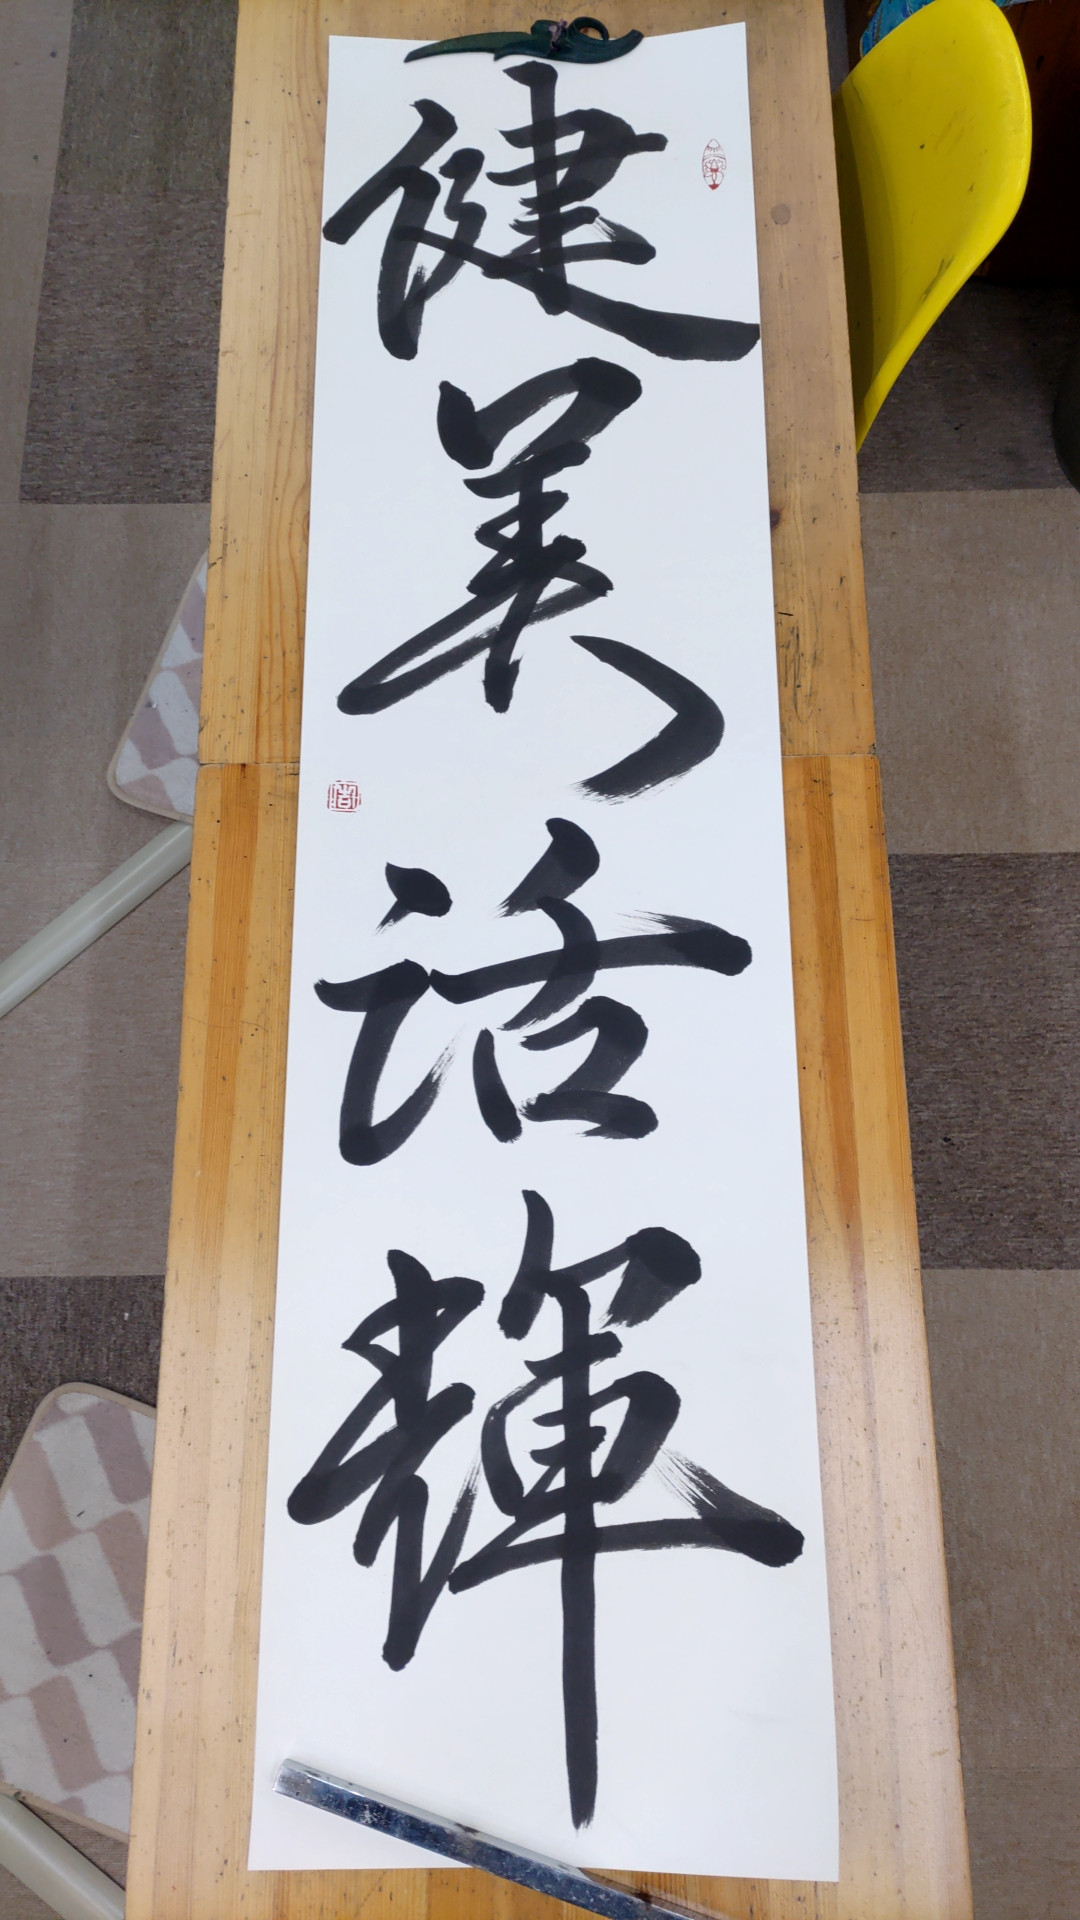 健美活輝